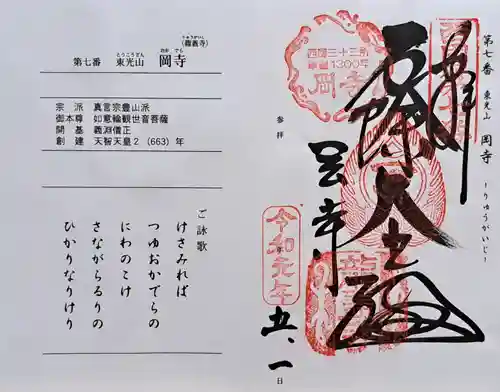 第七番 東光山 岡寺
とうこうざん おか でら
りゅうがいじ
(龍蓋寺)
宗 派 真言宗豊山派
御本尊 如意輪観世音菩薩
開 基 義淵僧正
創 建 天智天皇2(663)年
ご詠歌
けさみれば
つゆおかでらの
にわのこけ
さながらるりの
ひかりなりけり
第七番 東光山 岡寺 ーりゅうがいじー
奉拝
西国三十三所
草創1300年
岡寺
参拝
岡寺
令和元年
五、一
日